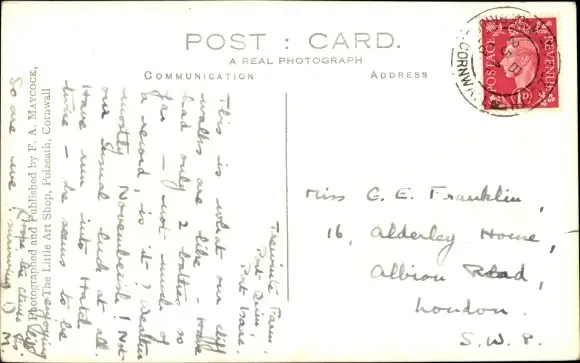 POST : CARD.
A REAL PHOTOGRAPH
COMMUNICATION
ADDRESS
POSTAGE
REVENUE
1D
CORNWALL
Trewint Farm,
Port Quin,
Port Isaac.
This is what our cliff
walks are like - Have
had only 2 bathes so
far - not much of
a record, is it? Weather
mostly November! Not
our usual luck at all.
Have run into
twice - he seems to be
enjoying
So are we
M.
Photographed and Published by F. A. MAYCOCK,
The Little Art Shop, Polzeath, Cornwall
Miss G. E. Franklin,
16, Alderley House,
Albion Road,
London.
S.W.8.